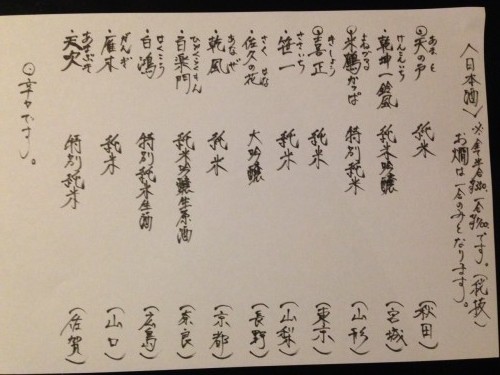 〈日本酒〉※全半合 一合 です。(税抜)
お燗は一合のみとなります。
あま と
⊙天の戸 純米 (秋田)
けんこんいち
・乾坤一鈴風 純米吟醸 (宮城)
よねつる
⊙米鶴かっぱ 特別純米 (山形)
きしょう
⊙喜正 純米 (東京)
ささいち
・笹一 純米 (山梨)
さく はな
・佐久の花 大吟醸 (長野)
あなぜ
・乾風 純米 (京都)
ひゃくらくもん
・百楽門 純米吟醸生原酒 (奈良)
はくこう
・白鴻 特別純米生酒 (広島)
がんぎ
・雁木 純米 (山口)
あまぶき
・天吹 特別純米 (佐賀)
⊙辛々です。